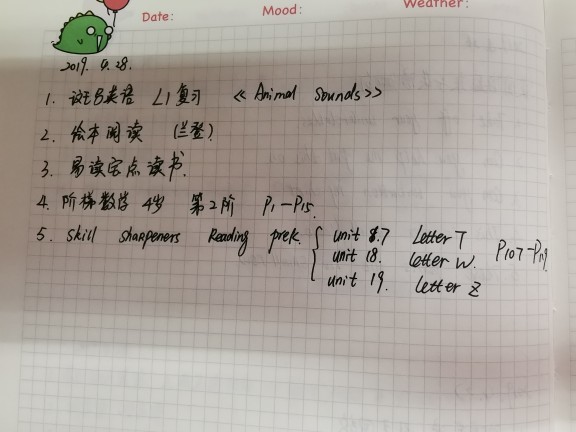 Date:
Mood:
Weather:
2019. 4. 28.
1. 斑马英语 L1复习 《Animal Sounds》
2. 绘本阅读 (兰登)
3. 易读宝点读书.
4. 阶梯数学 4岁 第2阶 P1—P15.
5. skill sharpeners Reading prek.
unit 7 Letter T
unit 18. letter W. P107-P119
unit 19. letter Z